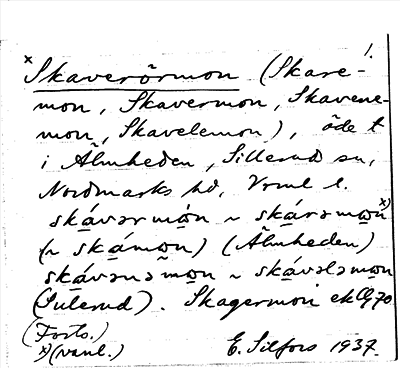 1.
x Skaverörmon (Skare-
mon, Skavermon, Skavene-
mon, Skavelemon), öde t
i Älmheden, Sillerud sn,
Nordmarks hd, Vrml l.
skávərmòn ~ skárəmòn x)
(~ skámon) (Älmheden)
skávənəmon ~ skávələmon
(Sulerud). Skagermon ek 70
(Forts.)
x) (vanl.) E. Silfors 1937.